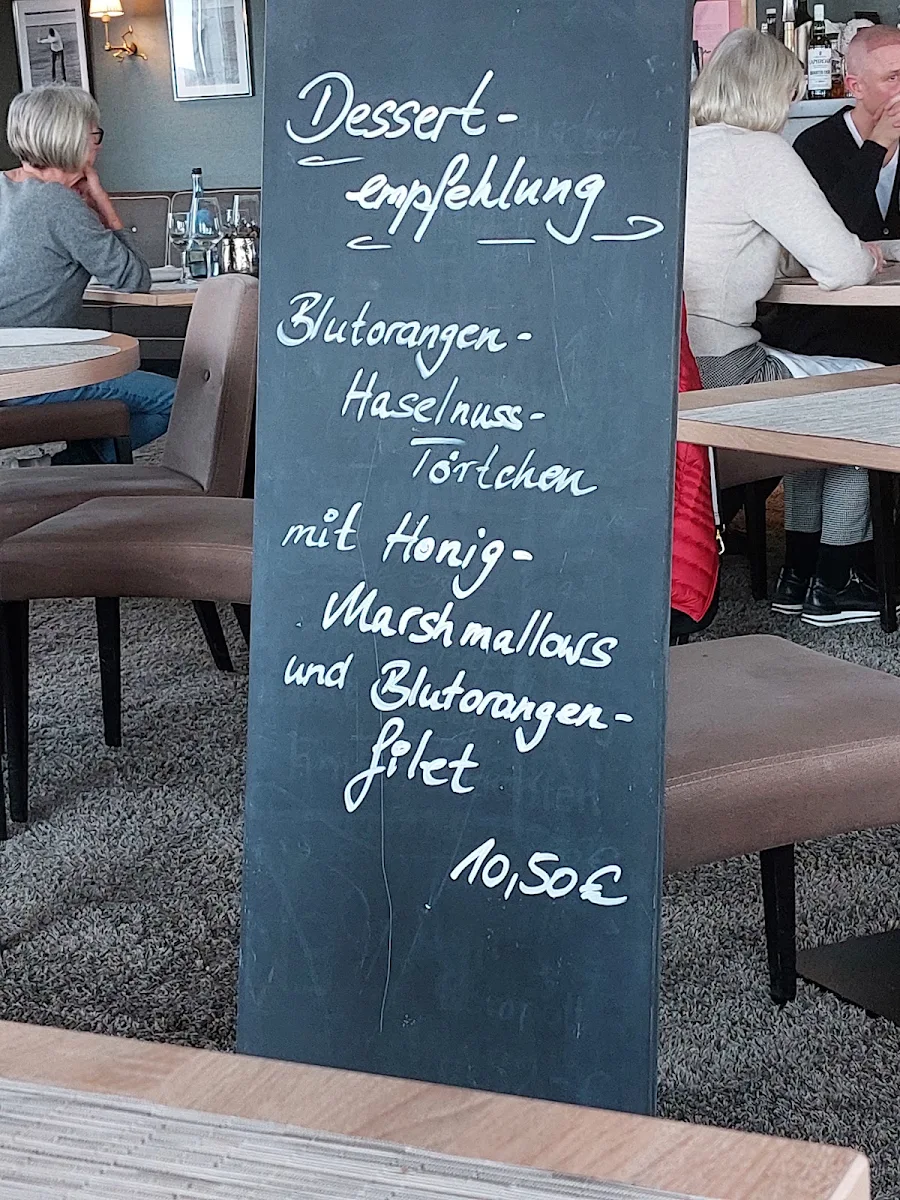 Dessert-
empfehlung
Blutorangen-
Haselnuss-
Törtchen
mit Honig-
Marshmallows
und Blutorangen-
filet
10,50€